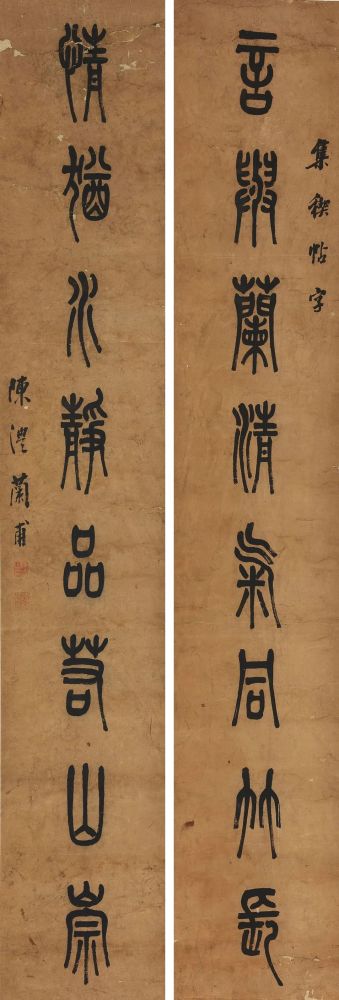 言與蘭清氣同竹長
集禊帖字
情猶水靜品若山崇
陳澧蘭甫